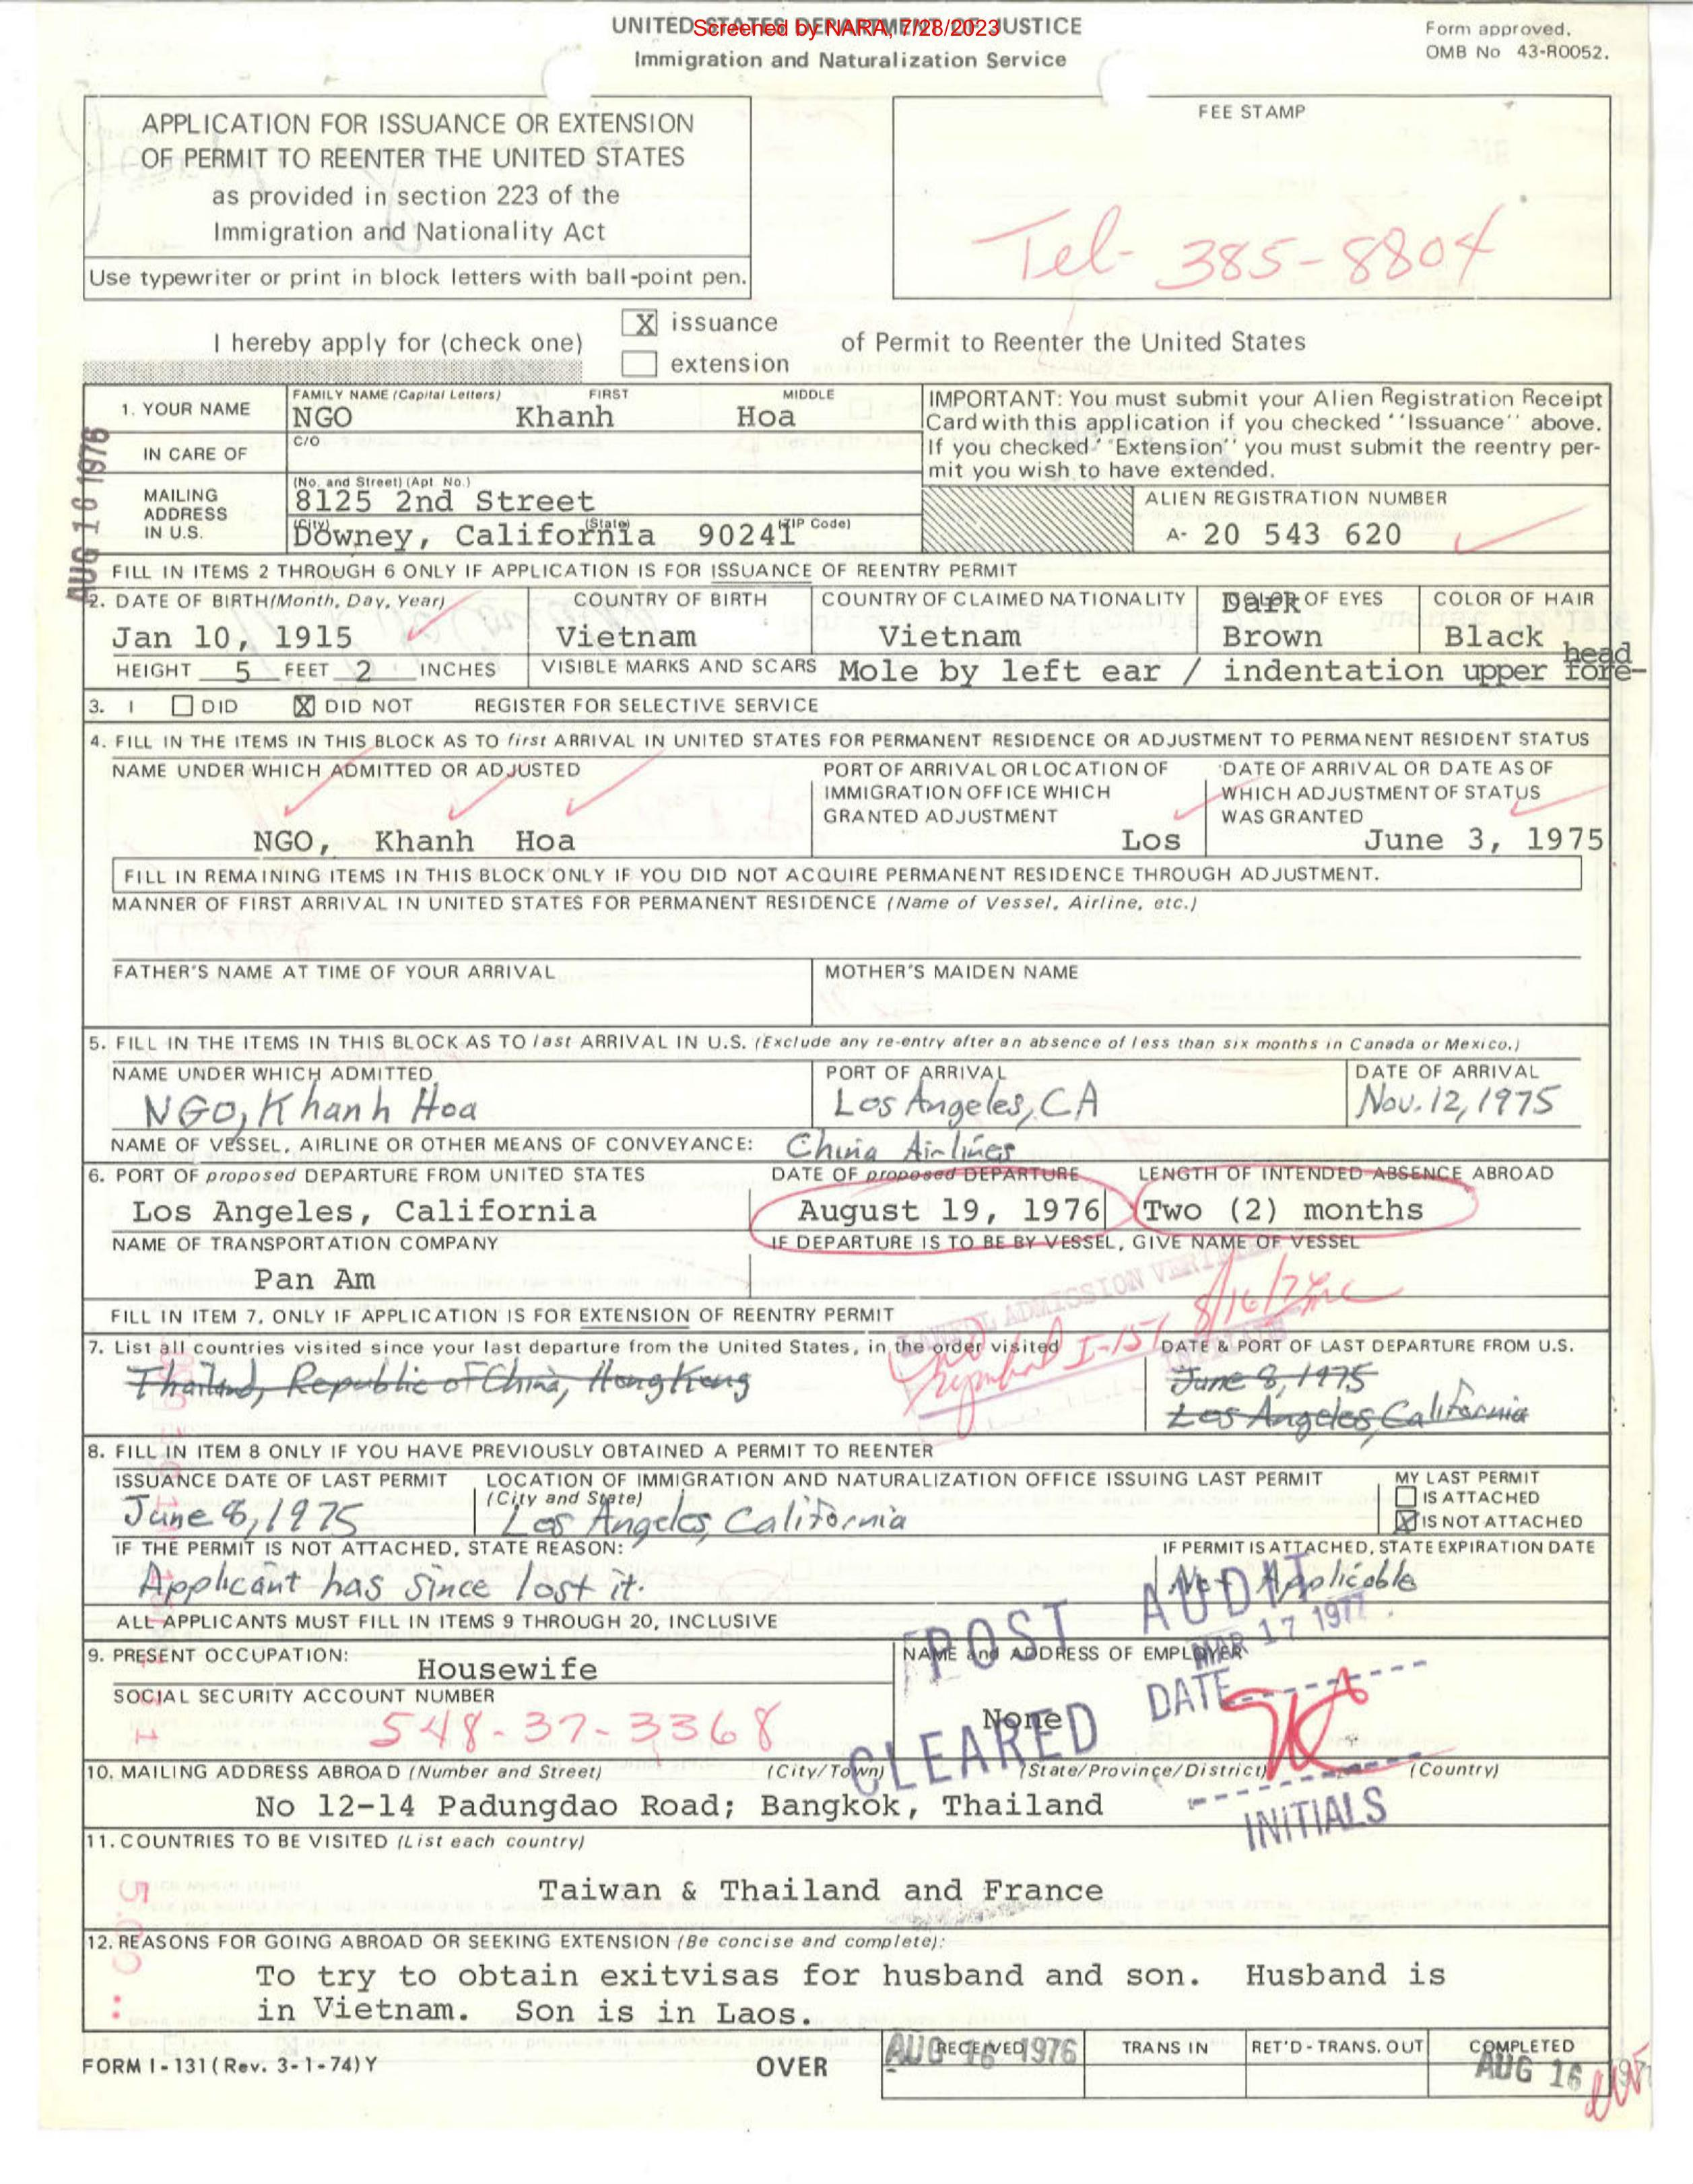 Screened by NARA, 7/28/2023
UNITED STATES DEPARTMENT OF JUSTICE
Immigration and Naturalization Service
Form approved.
OMB No 43-R0052.
APPLICATION FOR ISSUANCE OR EXTENSION
OF PERMIT TO REENTER THE UNITED STATES
as provided in section 223 of the
Immigration and Nationality Act
Use typewriter or print in block letters with ball-point pen.
FEE STAMP
Tel- 385-8804
I hereby apply for (check one)
X issuance
extension
of Permit to Reenter the United States
AUG 16 1976
1. YOUR NAME
FAMILY NAME (Capital Letters) FIRST MIDDLE
NGO Khanh Hoa
IN CARE OF
C/O
MAILING
ADDRESS
IN U.S.
(No. and Street) (Apt. No.)
8125 2nd Street
(City) (State) (ZIP Code)
Downey, California 90241
IMPORTANT: You must submit your Alien Registration Receipt
Card with this application if you checked "Issuance" above.
If you checked "Extension" you must submit the reentry per-
mit you wish to have extended.
ALIEN REGISTRATION NUMBER
A- 20 543 620
FILL IN ITEMS 2 THROUGH 6 ONLY IF APPLICATION IS FOR ISSUANCE OF REENTRY PERMIT
2. DATE OF BIRTH (Month, Day, Year) COUNTRY OF BIRTH COUNTRY OF CLAIMED NATIONALITY COLOR OF EYES COLOR OF HAIR
Jan 10, 1915 Vietnam Vietnam Dark Brown Black
HEIGHT 5 FEET 2 INCHES VISIBLE MARKS AND SCARS Mole by left ear / indentation upper fore-
head
3. I DID X DID NOT REGISTER FOR SELECTIVE SERVICE
4. FILL IN THE ITEMS IN THIS BLOCK AS TO first ARRIVAL IN UNITED STATES FOR PERMANENT RESIDENCE OR ADJUSTMENT TO PERMANENT RESIDENT STATUS
NAME UNDER WHICH ADMITTED OR ADJUSTED
NGO, Khanh Hoa
PORT OF ARRIVAL OR LOCATION OF
IMMIGRATION OFFICE WHICH
GRANTED ADJUSTMENT
Los
DATE OF ARRIVAL OR DATE AS OF
WHICH ADJUSTMENT OF STATUS
WAS GRANTED
June 3, 1975
FILL IN REMAINING ITEMS IN THIS BLOCK ONLY IF YOU DID NOT ACQUIRE PERMANENT RESIDENCE THROUGH ADJUSTMENT.
MANNER OF FIRST ARRIVAL IN UNITED STATES FOR PERMANENT RESIDENCE (Name of Vessel, Airline, etc.)
FATHER'S NAME AT TIME OF YOUR ARRIVAL
MOTHER'S MAIDEN NAME
5. FILL IN THE ITEMS IN THIS BLOCK AS TO last ARRIVAL IN U.S. (Exclude any re-entry after an absence of less than six months in Canada or Mexico.)
NAME UNDER WHICH ADMITTED PORT OF ARRIVAL DATE OF ARRIVAL
NGO, Khanh Hoa Los Angeles, CA Nov. 12, 1975
NAME OF VESSEL, AIRLINE OR OTHER MEANS OF CONVEYANCE: China Airlines
6. PORT OF proposed DEPARTURE FROM UNITED STATES DATE OF proposed DEPARTURE LENGTH OF INTENDED ABSENCE ABROAD
Los Angeles, California August 19, 1976 Two (2) months
NAME OF TRANSPORTATION COMPANY IF DEPARTURE IS TO BE BY VESSEL, GIVE NAME OF VESSEL
Pan Am
FILL IN ITEM 7, ONLY IF APPLICATION IS FOR EXTENSION OF REENTRY PERMIT
7. List all countries visited since your last departure from the United States, in the order visited DATE & PORT OF LAST DEPARTURE FROM U.S.
Thailand, Republic of China, Hong Kong
June 8, 1975
Los Angeles, California
I-151
8. FILL IN ITEM 8 ONLY IF YOU HAVE PREVIOUSLY OBTAINED A PERMIT TO REENTER
ISSUANCE DATE OF LAST PERMIT LOCATION OF IMMIGRATION AND NATURALIZATION OFFICE ISSUING LAST PERMIT MY LAST PERMIT
(City and State) IS ATTACHED
June 8, 1975 Los Angeles, California X IS NOT ATTACHED
IF THE PERMIT IS NOT ATTACHED, STATE REASON: IF PERMIT IS ATTACHED, STATE EXPIRATION DATE
Applicant has since lost it. Not Applicable
ALL APPLICANTS MUST FILL IN ITEMS 9 THROUGH 20, INCLUSIVE
POST AUDIT
MAR 17 1977
CLEARED DATE
INITIALS
9. PRESENT OCCUPATION: Housewife
NAME and ADDRESS OF EMPLOYER
None
SOCIAL SECURITY ACCOUNT NUMBER
548-37-3368
10. MAILING ADDRESS ABROAD (Number and Street) (City/Town) (State/Province/District) (Country)
No 12-14 Padungdao Road; Bangkok, Thailand
11. COUNTRIES TO BE VISITED (List each country)
Taiwan & Thailand and France
12. REASONS FOR GOING ABROAD OR SEEKING EXTENSION (Be concise and complete):
To try to obtain exitvisas for husband and son. Husband is
in Vietnam. Son is in Laos.
FORM I-131 (Rev. 3-1-74) Y
OVER
RECEIVED TRANS IN RET'D-TRANS. OUT COMPLETED
AUG 16 1976
AUG 16